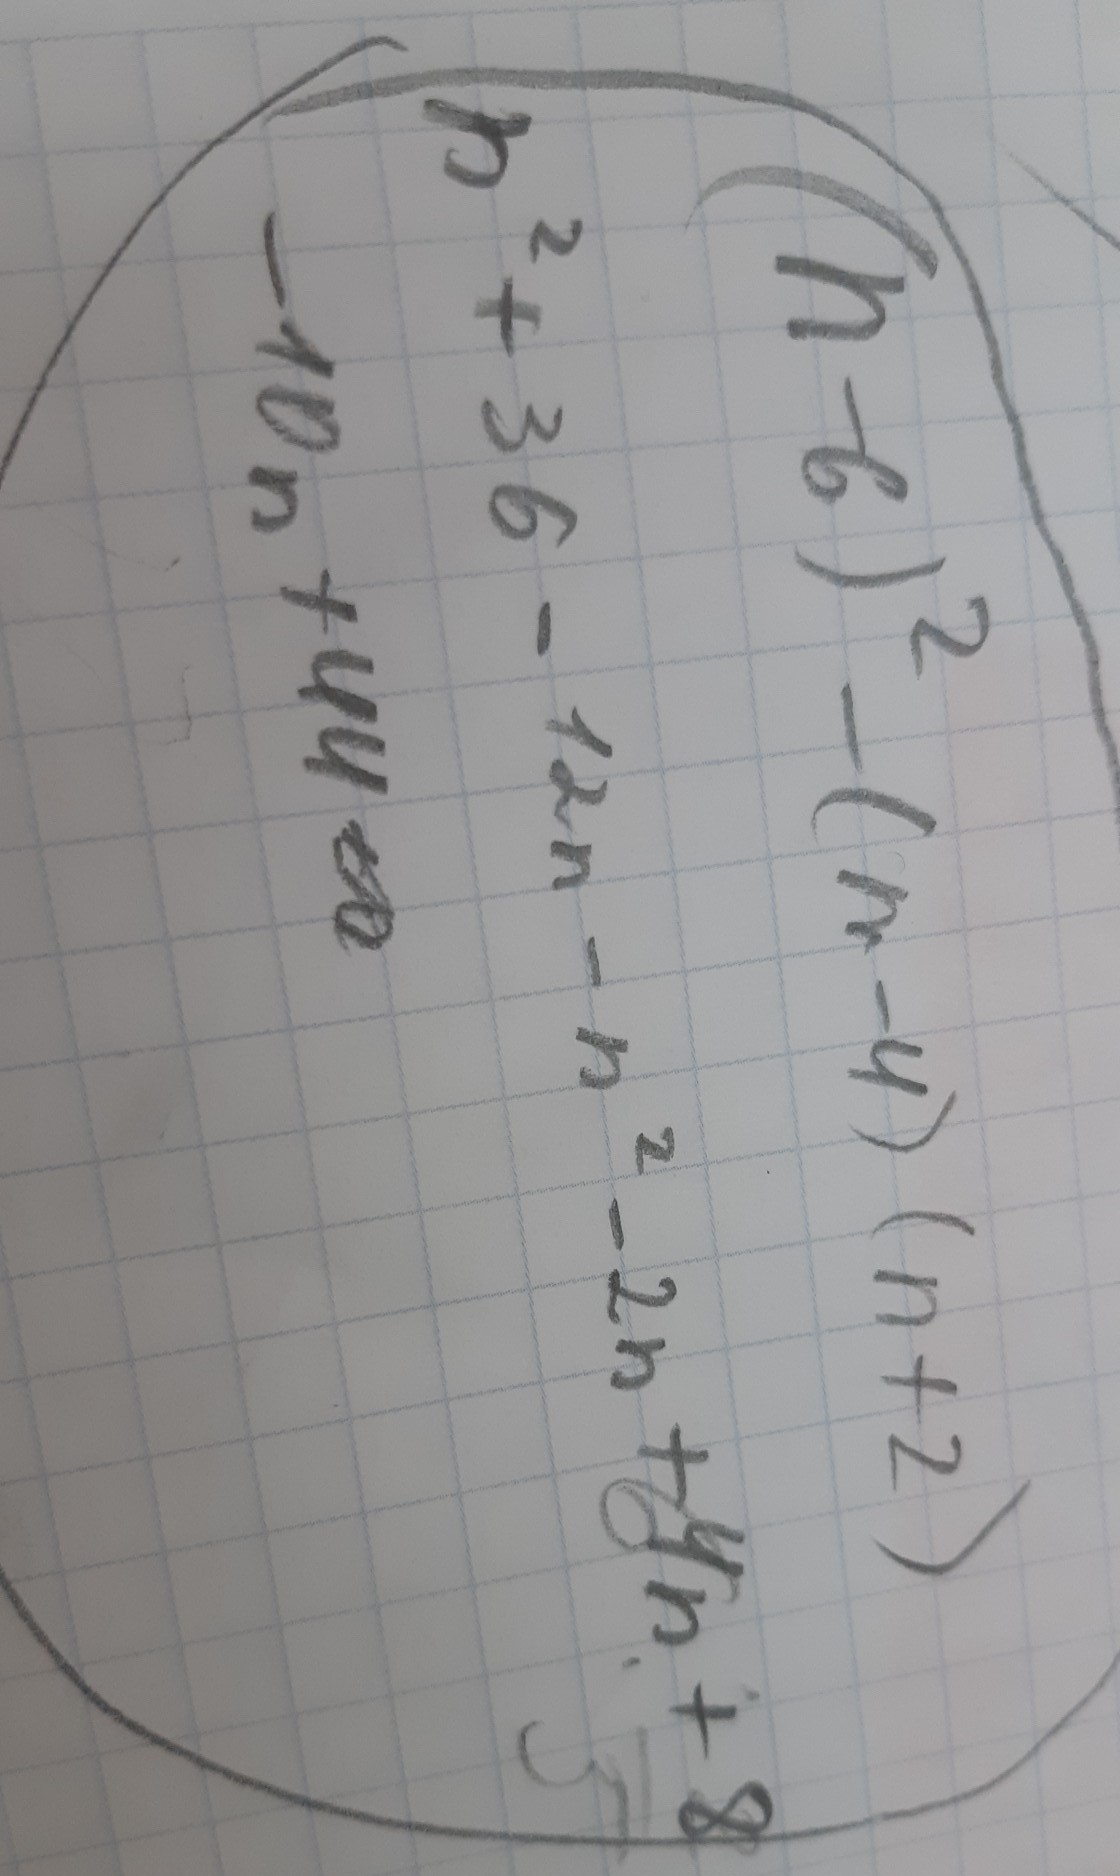 (n-6)² - (n-4)(n+2)
n² + 36 - 12n - n² - 2n + 4n + 8
-10n + 44